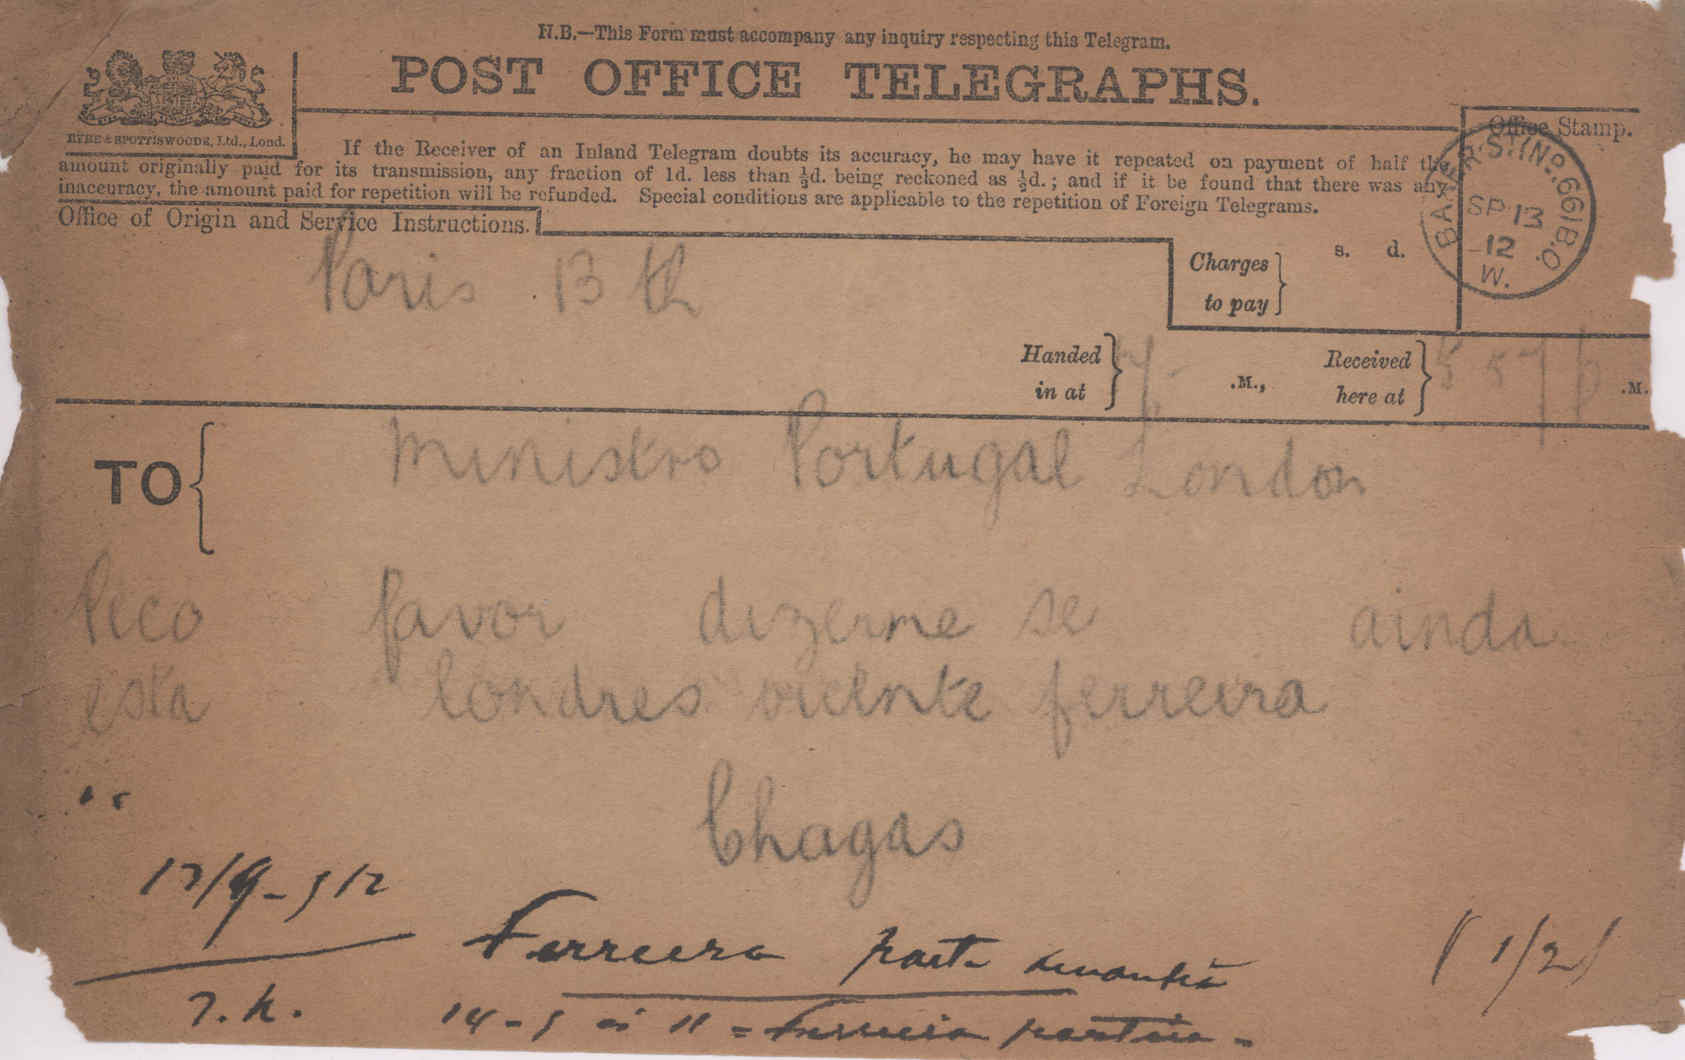 N.B.—This Form must accompany any inquiry respecting this Telegram.
POST OFFICE TELEGRAPHS.
EYRE & SPOTTISWOODE, Ltd., Lond.
Office Stamp.
If the Receiver of an Inland Telegram doubts its accuracy, he may have it repeated on payment of half the
amount originally paid for its transmission, any fraction of 1d. less than ½d. being reckoned as ½d.; and if it be found that there was any
inaccuracy, the amount paid for repetition will be refunded. Special conditions are applicable to the repetition of Foreign Telegrams.
BAKER ST. (No. 66) B.O.
SP 13
12
W.
Office of Origin and Service Instructions.
Paris 13 th
Charges
to pay
s. d.
Handed
in at
.M.,
Received
here at
5 57 p .M.
TO
Ministro Portugal London
Peco favor dizerme se ainda
esta londres vicente ferreira
Chagas
13/9-912
Ferreira parte amanhã
(1/2)
14-9 às 11 = Ferreira partiu -